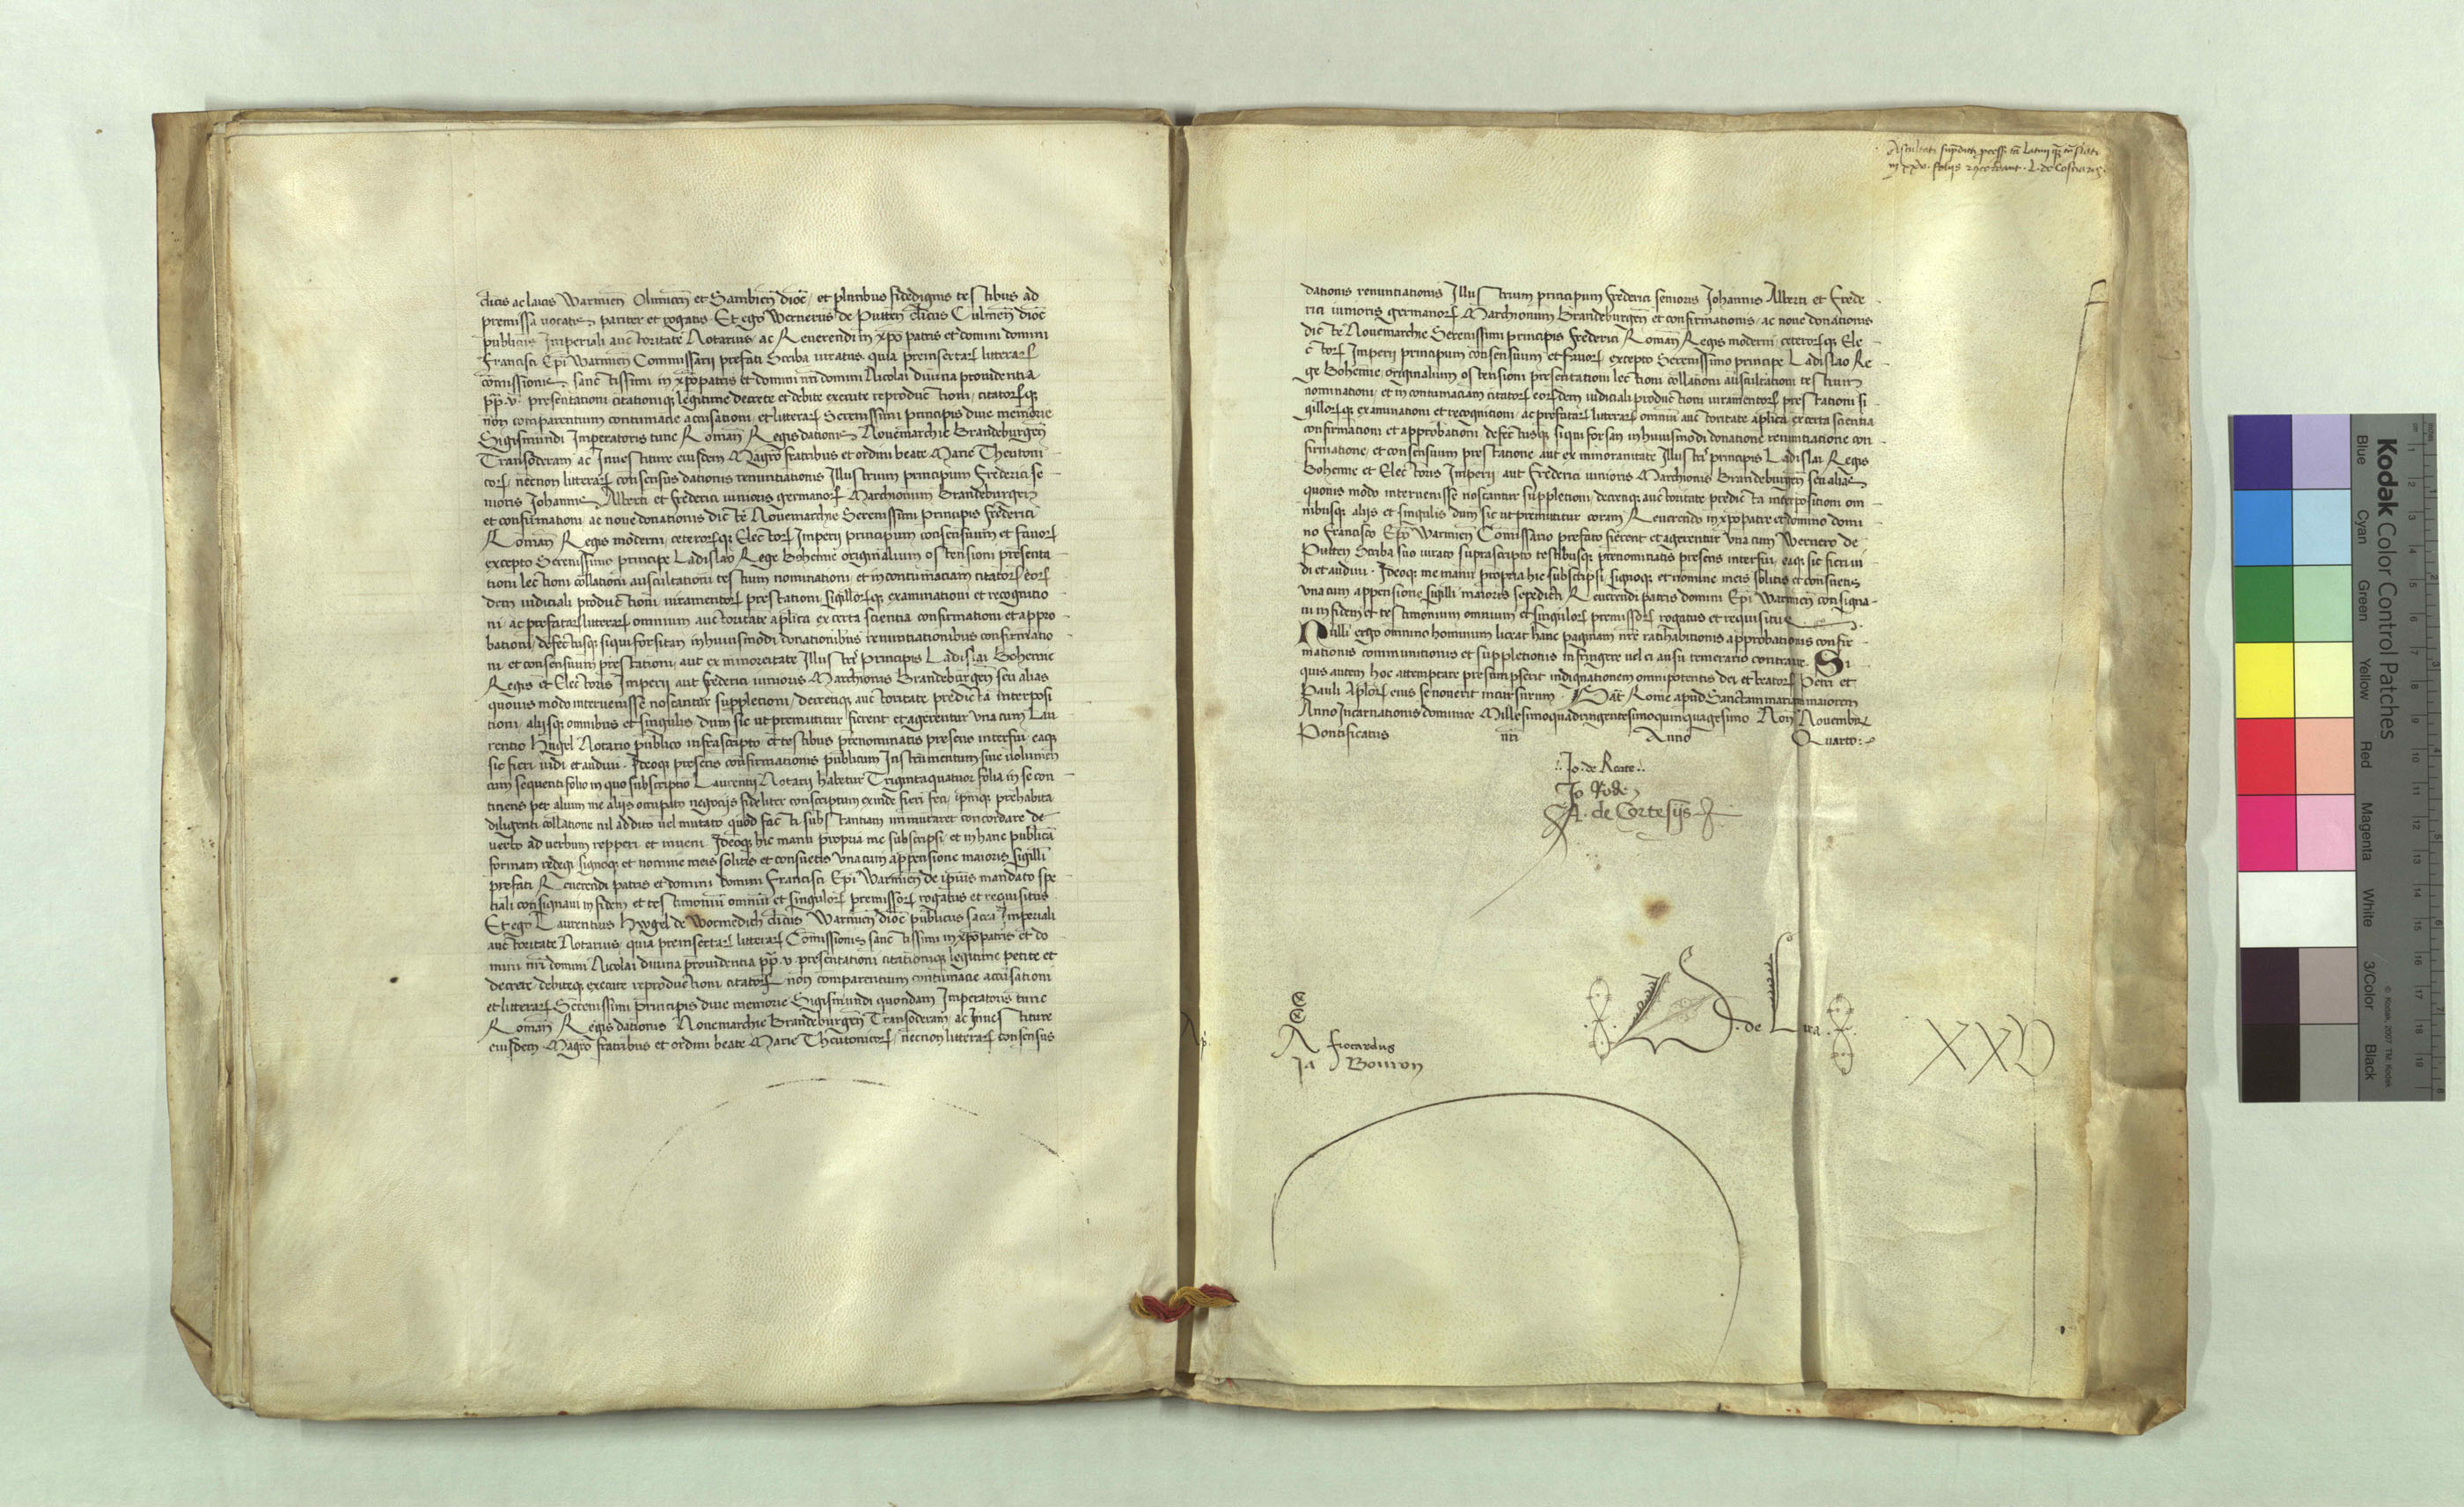 clicis ac laicis Warmien̄ Olmucen̄ et Sambien̄ dioc̄ / et pluribus fidedignis testibus ad
premissa vocatis pariter et rogatis. Et ego Wernerus de Putten clicus Culmen̄ dioc̄
publicus Imperiali auctoritate Notarius / ac Reuerendi in xp̄o patris et domini domini
Francisci Ep̄i Warmien̄ Commissarii prefati Scriba iuratus quia preinsertarꝝ litterarꝝ
cōmissionis sanctissimi in xp̄o patris et domini nr̄i domini Nicolai diuina prouidentia
pp̄. v. presentationi citationiqꝫ legitime decrete et debite execute reproductioni / citatorꝝqꝫ
non comparentium contumacie accusationi / et litterarꝝ Serenissimi principis diue memorie
Sigismundi Imperatoris tunc Roman̄ Regis dationis Nouemarchie Brandeburgen̄
Transoderam ac Inuestiture eiusdem Magr̄o fratribus et ordini beate Marie Theutoni
corꝝ / necnon litterarꝝ consensus dationis renuntiationis Illustrium principum Frederici se
nioris Johannis Alberti et Frederici iunioris germanorꝝ Marchionum Brandeburgen̄
et confirmationi / ac noue donationis dicte Nouemarchie Serenissimi principis Frederici
Roman̄ Regis moderni / ceterorꝝqꝫ Electorꝝ Imperii principum consensuum et fauorꝝ
excepto Serenissimo principe Ladislao Rege Bohemie originalium ostensioni presenta
tioni lectioni collationi auscultationi testium nominationi / et in contumaciam citatorꝝ eorꝝ
dem iudiciali productioni / iuramentorꝝ prestationi / sigillorꝝqꝫ examinationi et recognitio
ni / ac prefatarꝝ litterarꝝ omnium auctoritate aplica ex certa scientia confirmationi et appro
bationi / defectusqꝫ siqui forsitan in huiusmodi donationibus renuntiationibus confirmatio
ni et consensuum prestationi / aut ex minoreitate Illustr̄ Principis Ladislai Bohemie
Regis et Electoris Imperii aut Frederici iunioris Marchionis Brandeburgen̄ seu alias
quouis modo interuenisse noscantur suppletioni / decretiqꝫ auctoritate predicta interposi
tioni / aliisqꝫ omnibus et singulis dum sic ut premittitur fierent et agerentur vna cum Lau
rentio Hugel Notario publico infrascripto et testibus prenominatis presens interfui eaqꝫ
sic fieri vidi et audiui. Ideoqꝫ presens confirmationis publicum Instrumentum siue volumen
cum sequenti folio in quo subscriptio Laurentii Notarii habetur Trigintaquatuor folia in se con
tinens per alium me aliis occupato negociis fideliter conscriptum exinde fieri feci / ipmqꝫ prehabita
diligenti collatione nil addito uel mutato quod facti substantiam immutaret concordare de
verbo ad verbum repperi et inueni. Ideoqꝫ hic manu propria me subscripsi / et in hanc publicā
formam redegi signoqꝫ et nomine meis solitis et consuetis vna cum appensione maioris sigilli
prefati Reuerendi patris et domini domini Francisci Ep̄i Warmien̄ de ipius mandato spe
tiali consignaui in fidem et testimoniū omniū et singulorꝝ premissorꝝ rogatus et requisitus
Et ego Laurentius Hwgel de Wormedich clicus Warmien̄ dioc̄ publicus sacra Imperiali
auctoritate Notarius / quia preinsertarꝝ litterarꝝ Cōmissionis sanctissimi in xp̄o patris et do
mini nr̄i domini Nicolai diuina prouidentia pp̄. v. presentationi citationiqꝫ legitime petite et
decrete / debiteqꝫ execute reproductioni citatorꝝ non comparentium contumacie accusationi
et litterarꝝ Serenissimi principis diue memorie Sigismundi quondam Imperatoris tunc
Roman̄ Regis dationis Nouemarchie Brandeburgen̄ Transoderam ac Inuestiture
eiusdem Magr̄o fratribus et ordini beate Marie Theutonicorꝝ / necnon litterarꝝ consensus
in xxv. foliis L. de Coscia
dationis renuntiationis Illustrium principum Frederici senioris Johannis Alberti et Frede
rici iunioris germanorꝝ Marchionum Brandeburgen̄ et confirmationis / ac noue donationis
dicte Nouemarchie Serenissimi principis Frederici Roman̄ Regis moderni / ceterorꝝqꝫ Ele
ctorꝝ Imperii principum consensuum et fauorꝝ / excepto Serenissimo principe Ladislao Re
ge Bohemie / originalium ostensioni presentationi lectioni collationi auscultationi testium
nominationi / et in contumaciam citatorꝝ eorꝝdem iudiciali productioni iuramentorꝝ prestationi si
gillorꝝqꝫ examinationi et recognitioni / ac prefatarꝝ litterarꝝ omniū auctoritate aplica ex certa scientia
confirmationi et approbationi defectusqꝫ siqui forsan in huiusmodi donatione renuntiatione con
firmatione / et consensuum prestatione aut ex minoranitate Illustr̄ principis Ladislai Regis
Bohemie et Electoris Imperii aut Frederici iunioris Marchionis Brandeburgen̄ seu alias
quouis modo interuenisse noscantur suppletioni / decretiqꝫ auctoritate predicta interpositioni om
nibusqꝫ aliis et singulis dum sic ut premittitur coram Reuerendo in xp̄o patre et domino domi
no Francisco Ep̄o Warmien̄ Cōmissario prefato fierent et agerentur vna cum Wernero de
Putten Scriba suo iurato suprascripto testibusqꝫ prenominatis presens interfui / eaqꝫ sic fieri vi
di et audiui. Ideoqꝫ me manu propria hic subscripsi / signoqꝫ et nomine meis solitis et consuetis
vna cum appensione sigilli maioris sepedicti Reuerendi patris domini Ep̄i Warmien̄ consigna
ui in fidem et testimonium omnium et singulorꝝ premissorꝝ rogatus et requisitus
Nulli ergo omnino hominum liceat hanc paginam nr̄e ratihabitionis approbationis confir
mationis communitionis et suppletionis infringere uel ei ausu temerario contraire. Si
quis autem hoc attemptare presumpserit indignationem omnipotentis dei et beatorꝝ Petri et
Pauli Aplorꝝ eius se nouerit incursurum. Dat̄ Rome apud Sanctam mariam maiorem
Anno Incarnationis dominice Millesimoquadringentesimoquinquagesimo Non̄ Nouembr̄
Pontificatus nr̄i Anno Quarto:
.Jo. de Reate.
Jo Rode
A. de Cortesijs
A fiocardus
Ja Bouron
D. de Luca
XXV
Kodak Color Control Patches
Blue Cyan Green Yellow Red Magenta White 3/Color Black
© Kodak, 2007 TM: Kodak